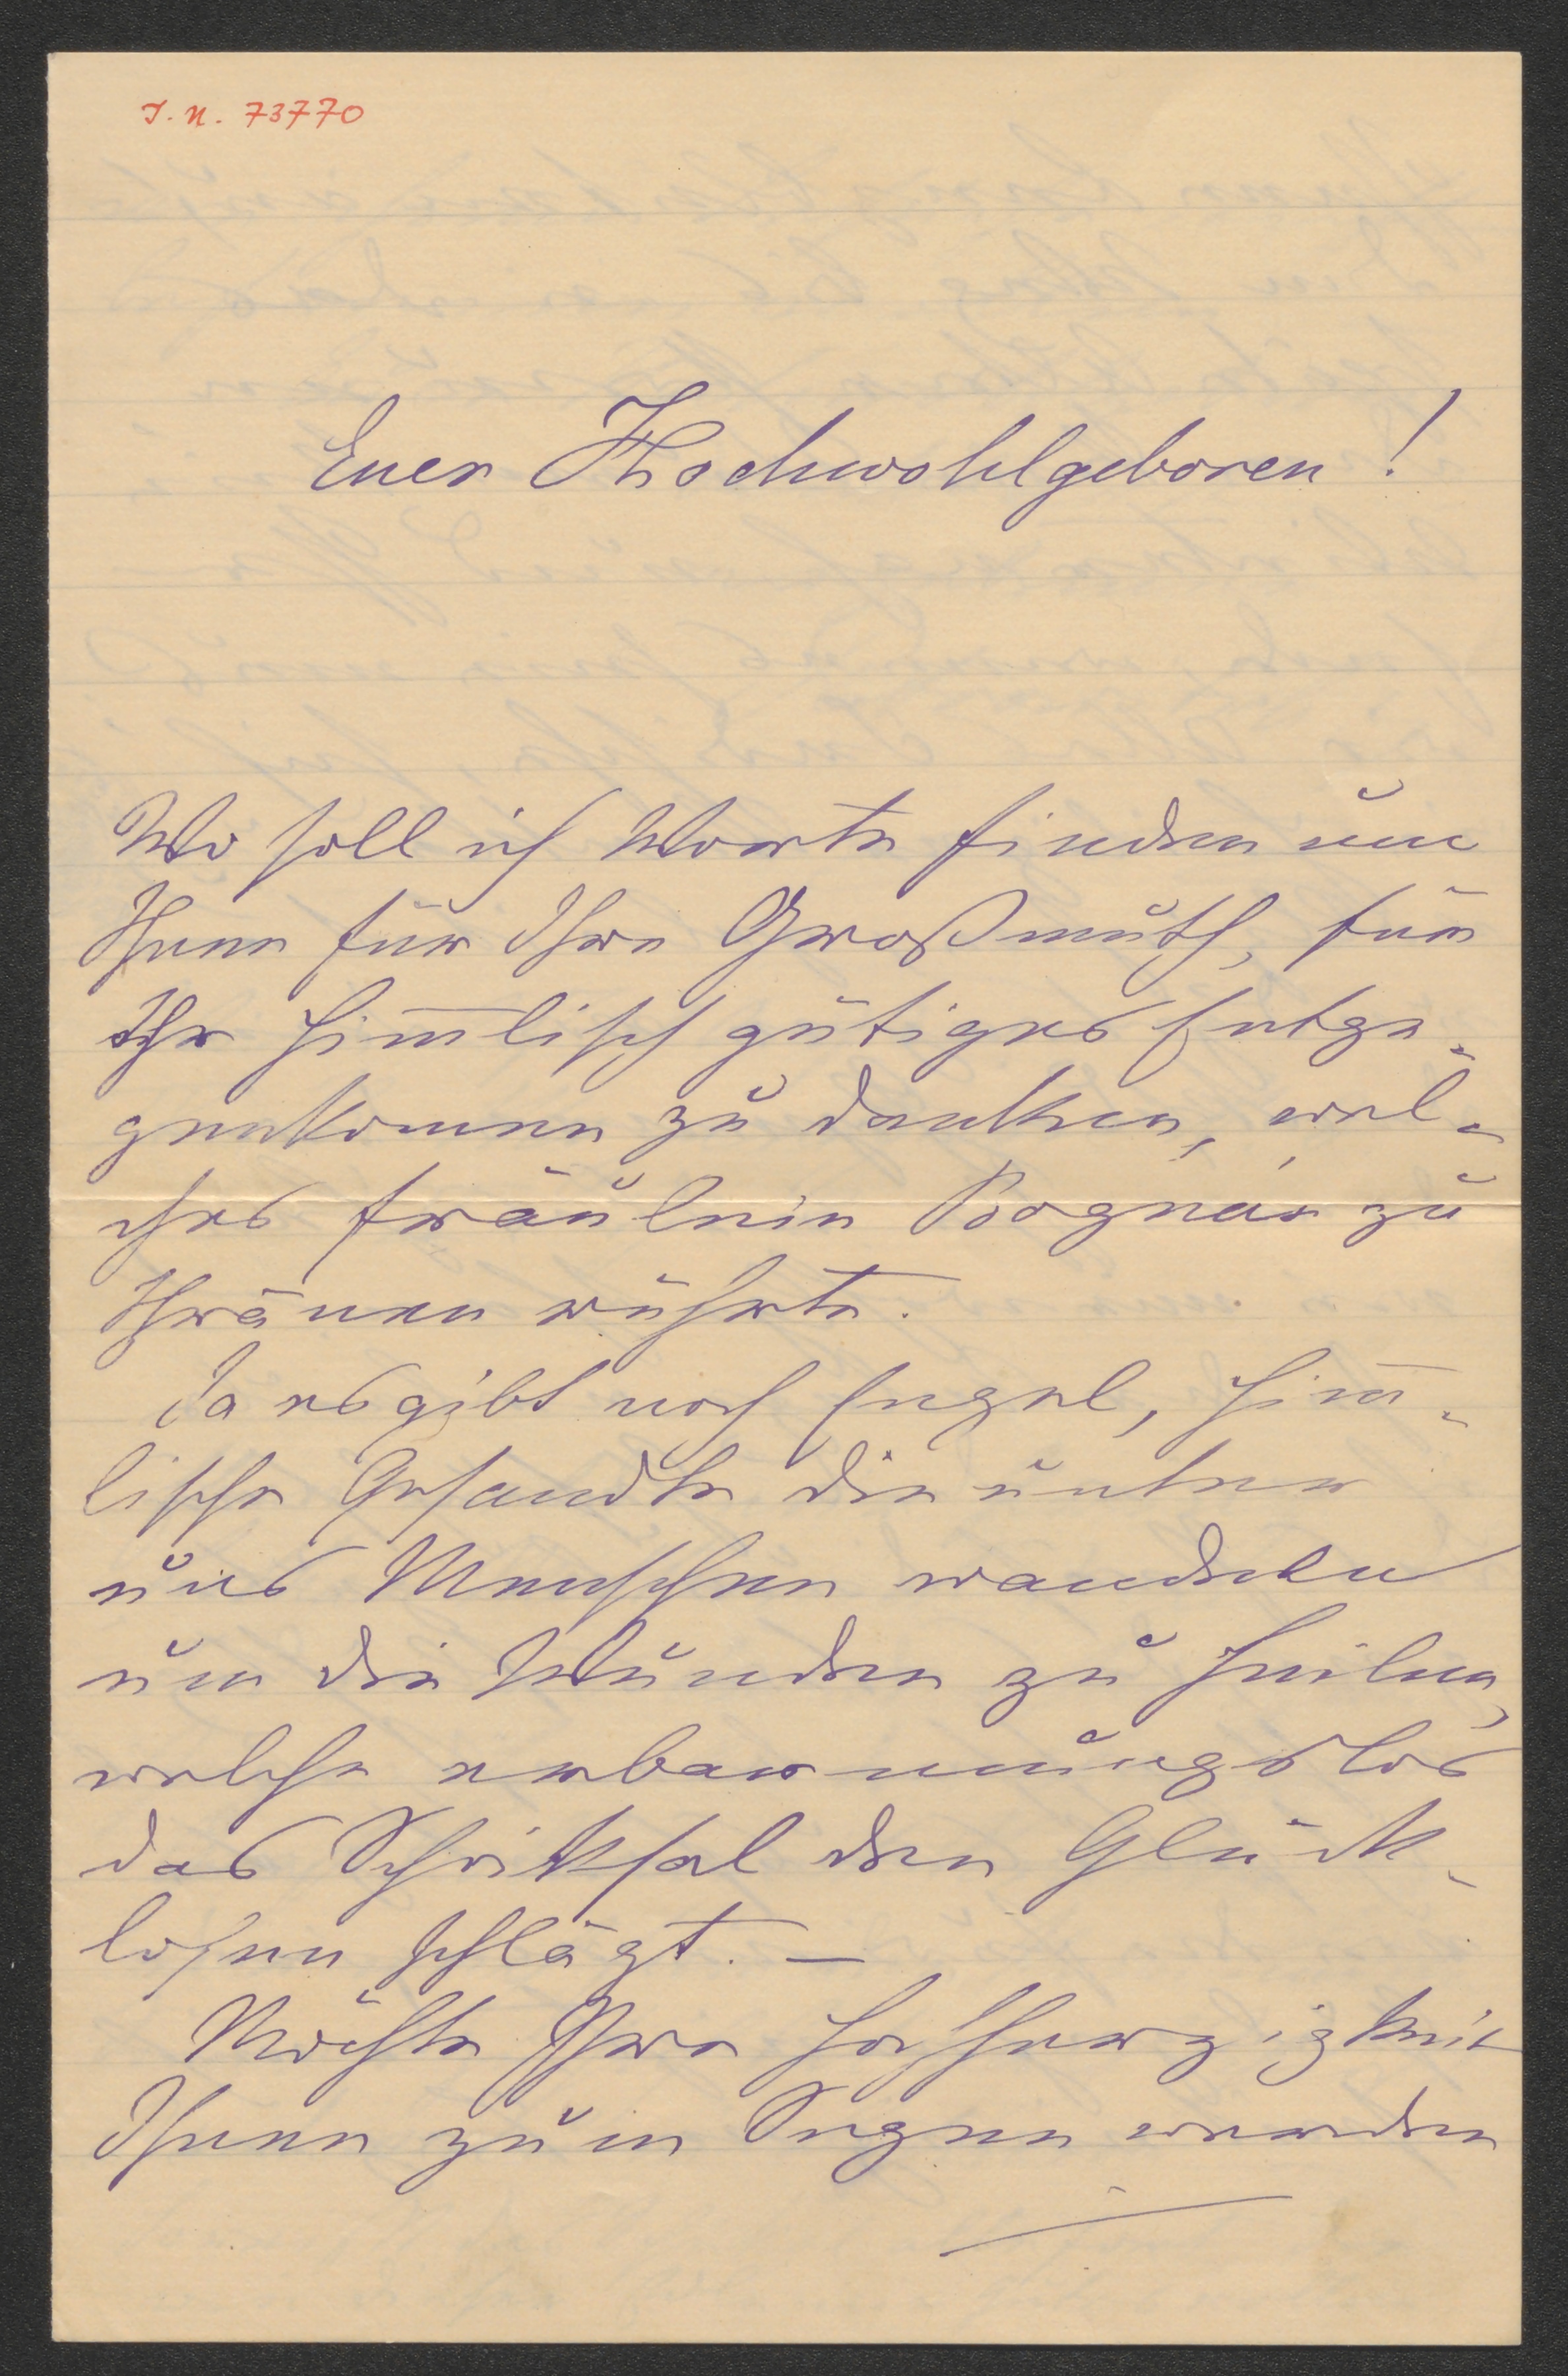 I. N. 73770
Euer Hochwohlgeboren!
Wo soll ich Worte finden um
Ihnen für Ihre Großmuth, für
Ihr him̅lisch gütiges Entge-
genkommen zu danken, wel-
ches Fräulein Bognár zu
Thränen rührte.
Ja es gibt noch Engel, him̅-
lische Gesandte die unter
uns Menschen wandeln
um die Wunden zu heilen,
welche erbarmungslos
das Schicksal den Glück-
losen schlägt. —
Möchte Ihre Hochherzigkeit
Ihnen zum Segen werden